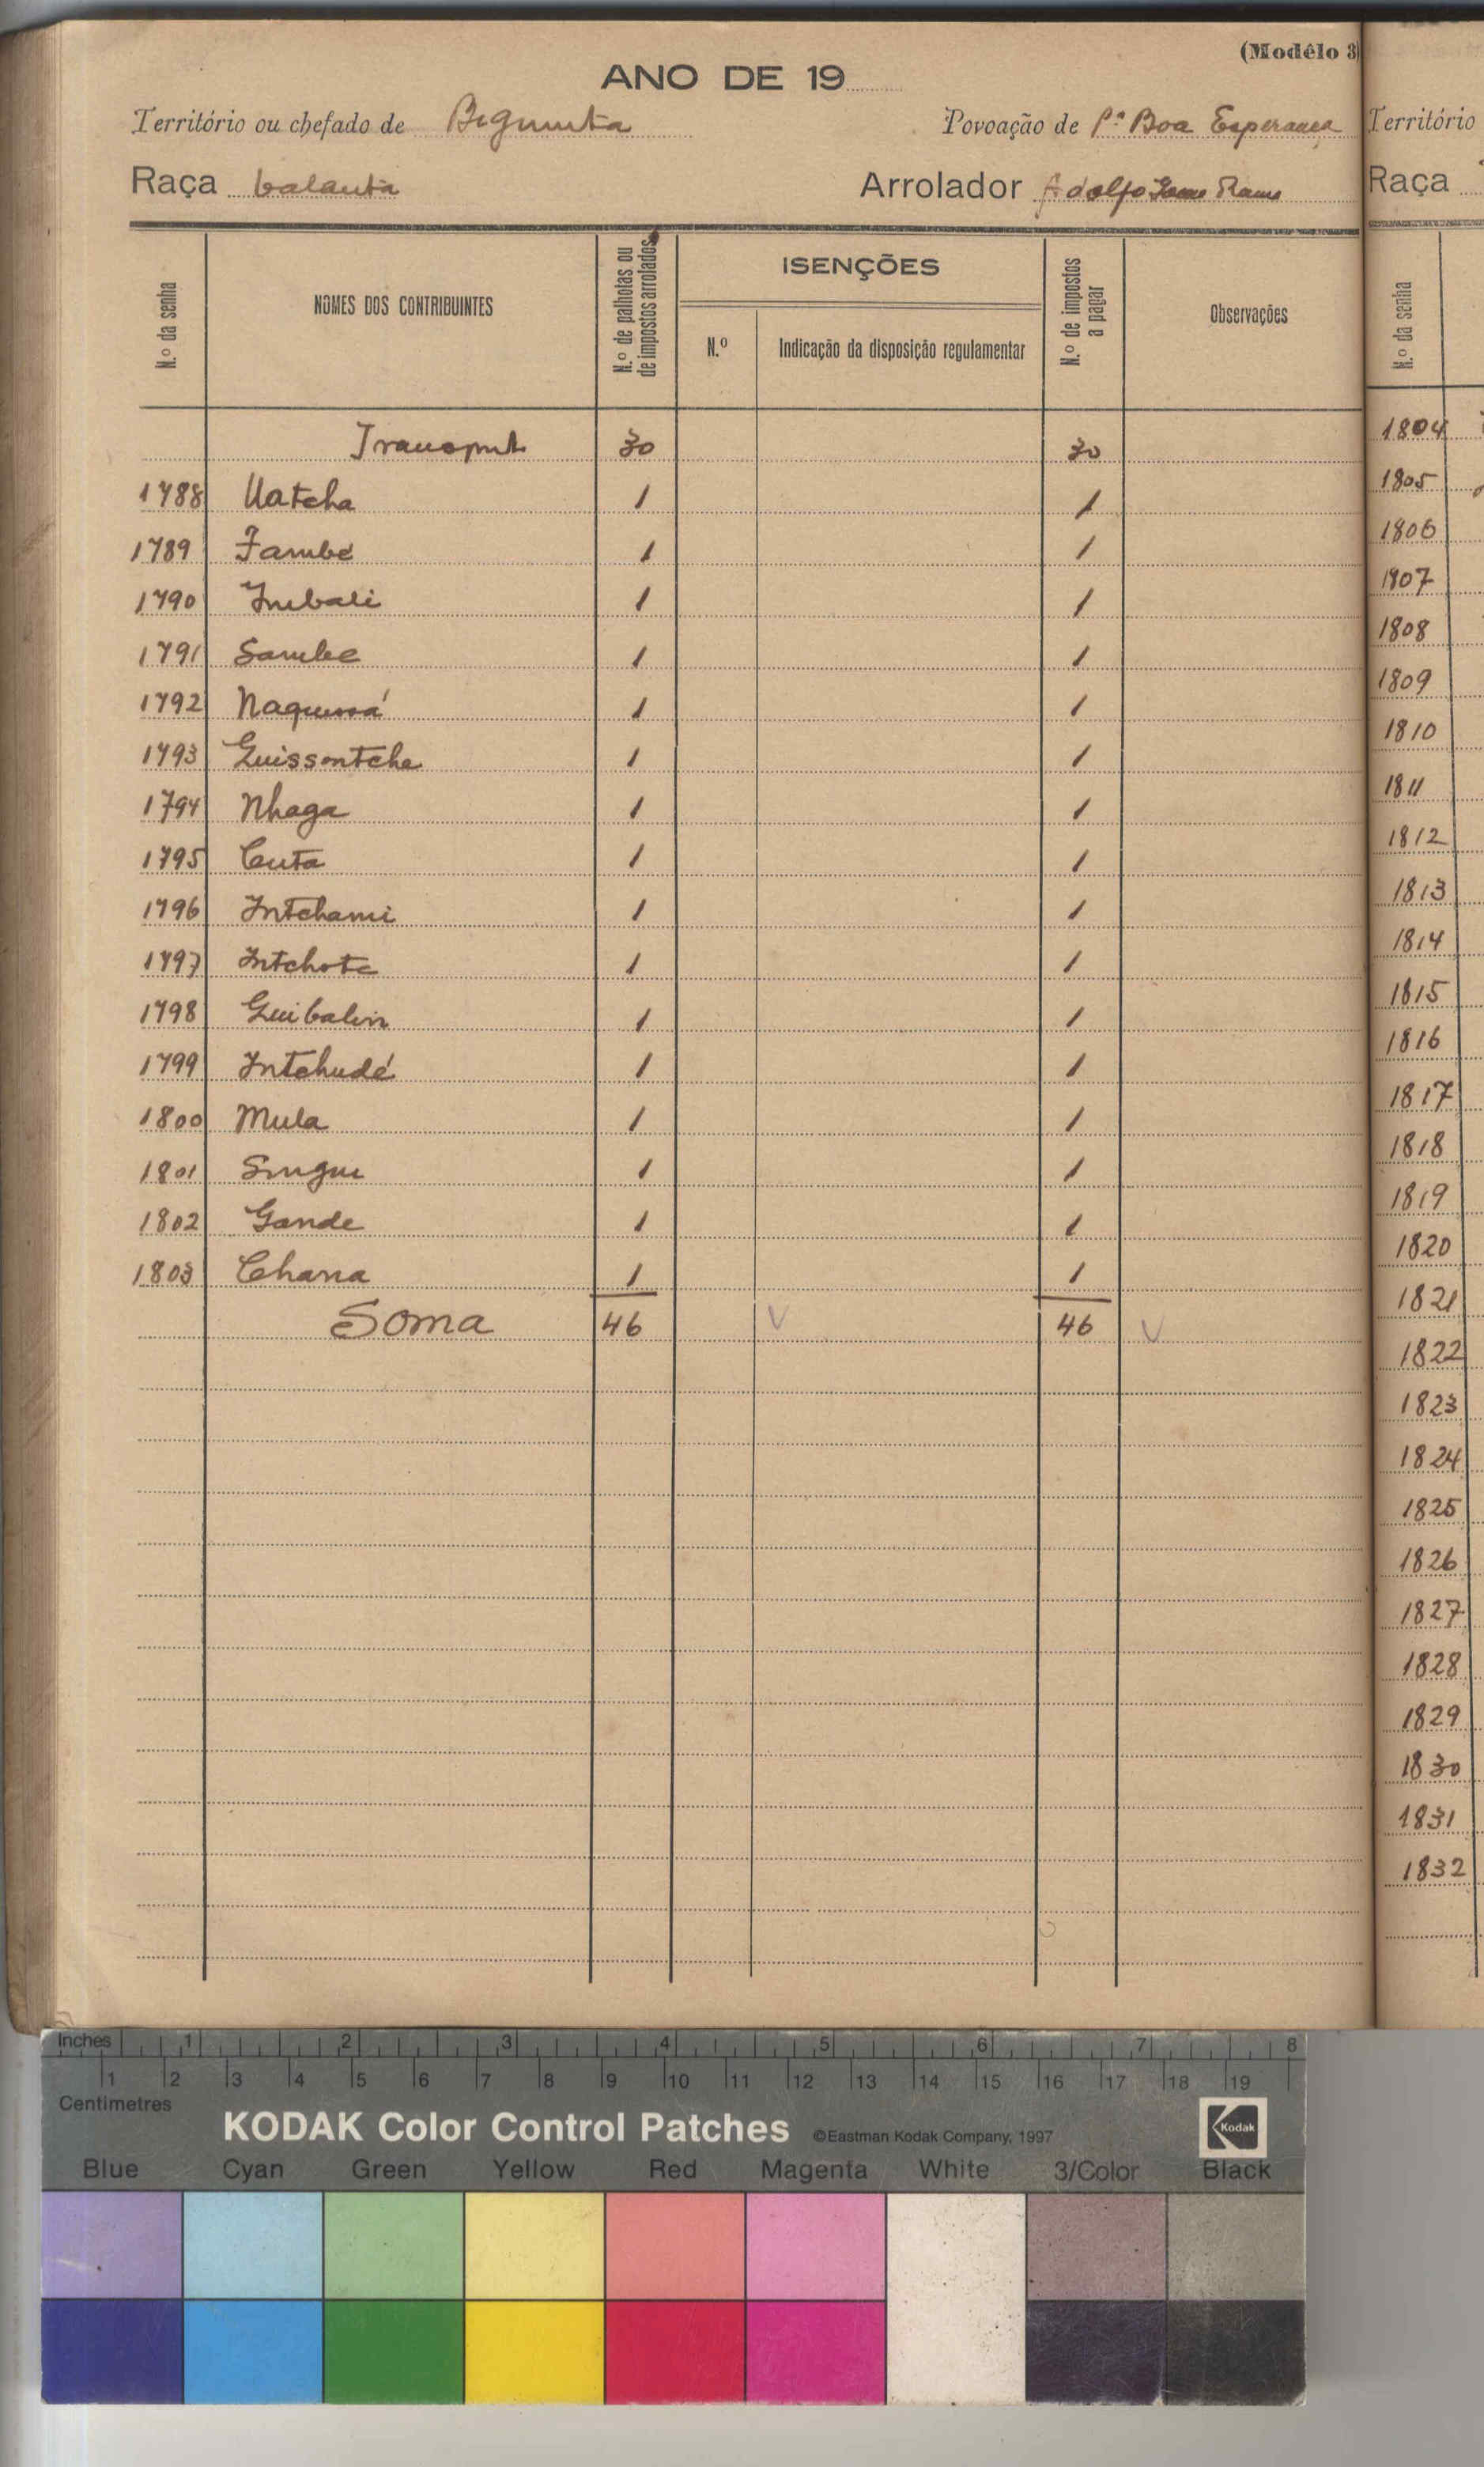 (Modêlo 3)
ANO DE 19
Território ou chefado de
Povoação de Pª Boa Esperança
Raça balanta
Arrolador Adolfo
N.º da senha
NOMES DOS CONTRIBUINTES
N.º de palhotas ou de impostos arrolados
ISENÇÕES
N.º
Indicação da disposição regulamentar
N.º de impostos a pagar
Observações
Transporte 30 30
1788 Uatcha 1 1
1789 Fambé 1 1
1790 Imbali 1 1
1791 Sambe 1 1
1792 1 1
1793 Guissontche 1 1
1794 Nhaga 1 1
1795 Cuta 1 1
1796 Intchami 1 1
1797 Intchote 1 1
1798 1 1
1799 Intchudé 1 1
1800 Mula 1 1
1801 1 1
1802 Gande 1 1
1803 Chana 1 1
Soma 46 46
Território
Raça
N.º da senha
1804
1805
1806
1807
1808
1809
1810
1811
1812
1813
1814
1815
1816
1817
1818
1819
1820
1821
1822
1823
1824
1825
1826
1827
1828
1829
1830
1831
1832
Inches 1 2 3 4 5 6 7 8
1 2 3 4 5 6 7 8 9 10 11 12 13 14 15 16 17 18 19
Centimetres
KODAK Color Control Patches ©Eastman Kodak Company, 1997 Kodak
Blue Cyan Green Yellow Red Magenta White 3/Color Black